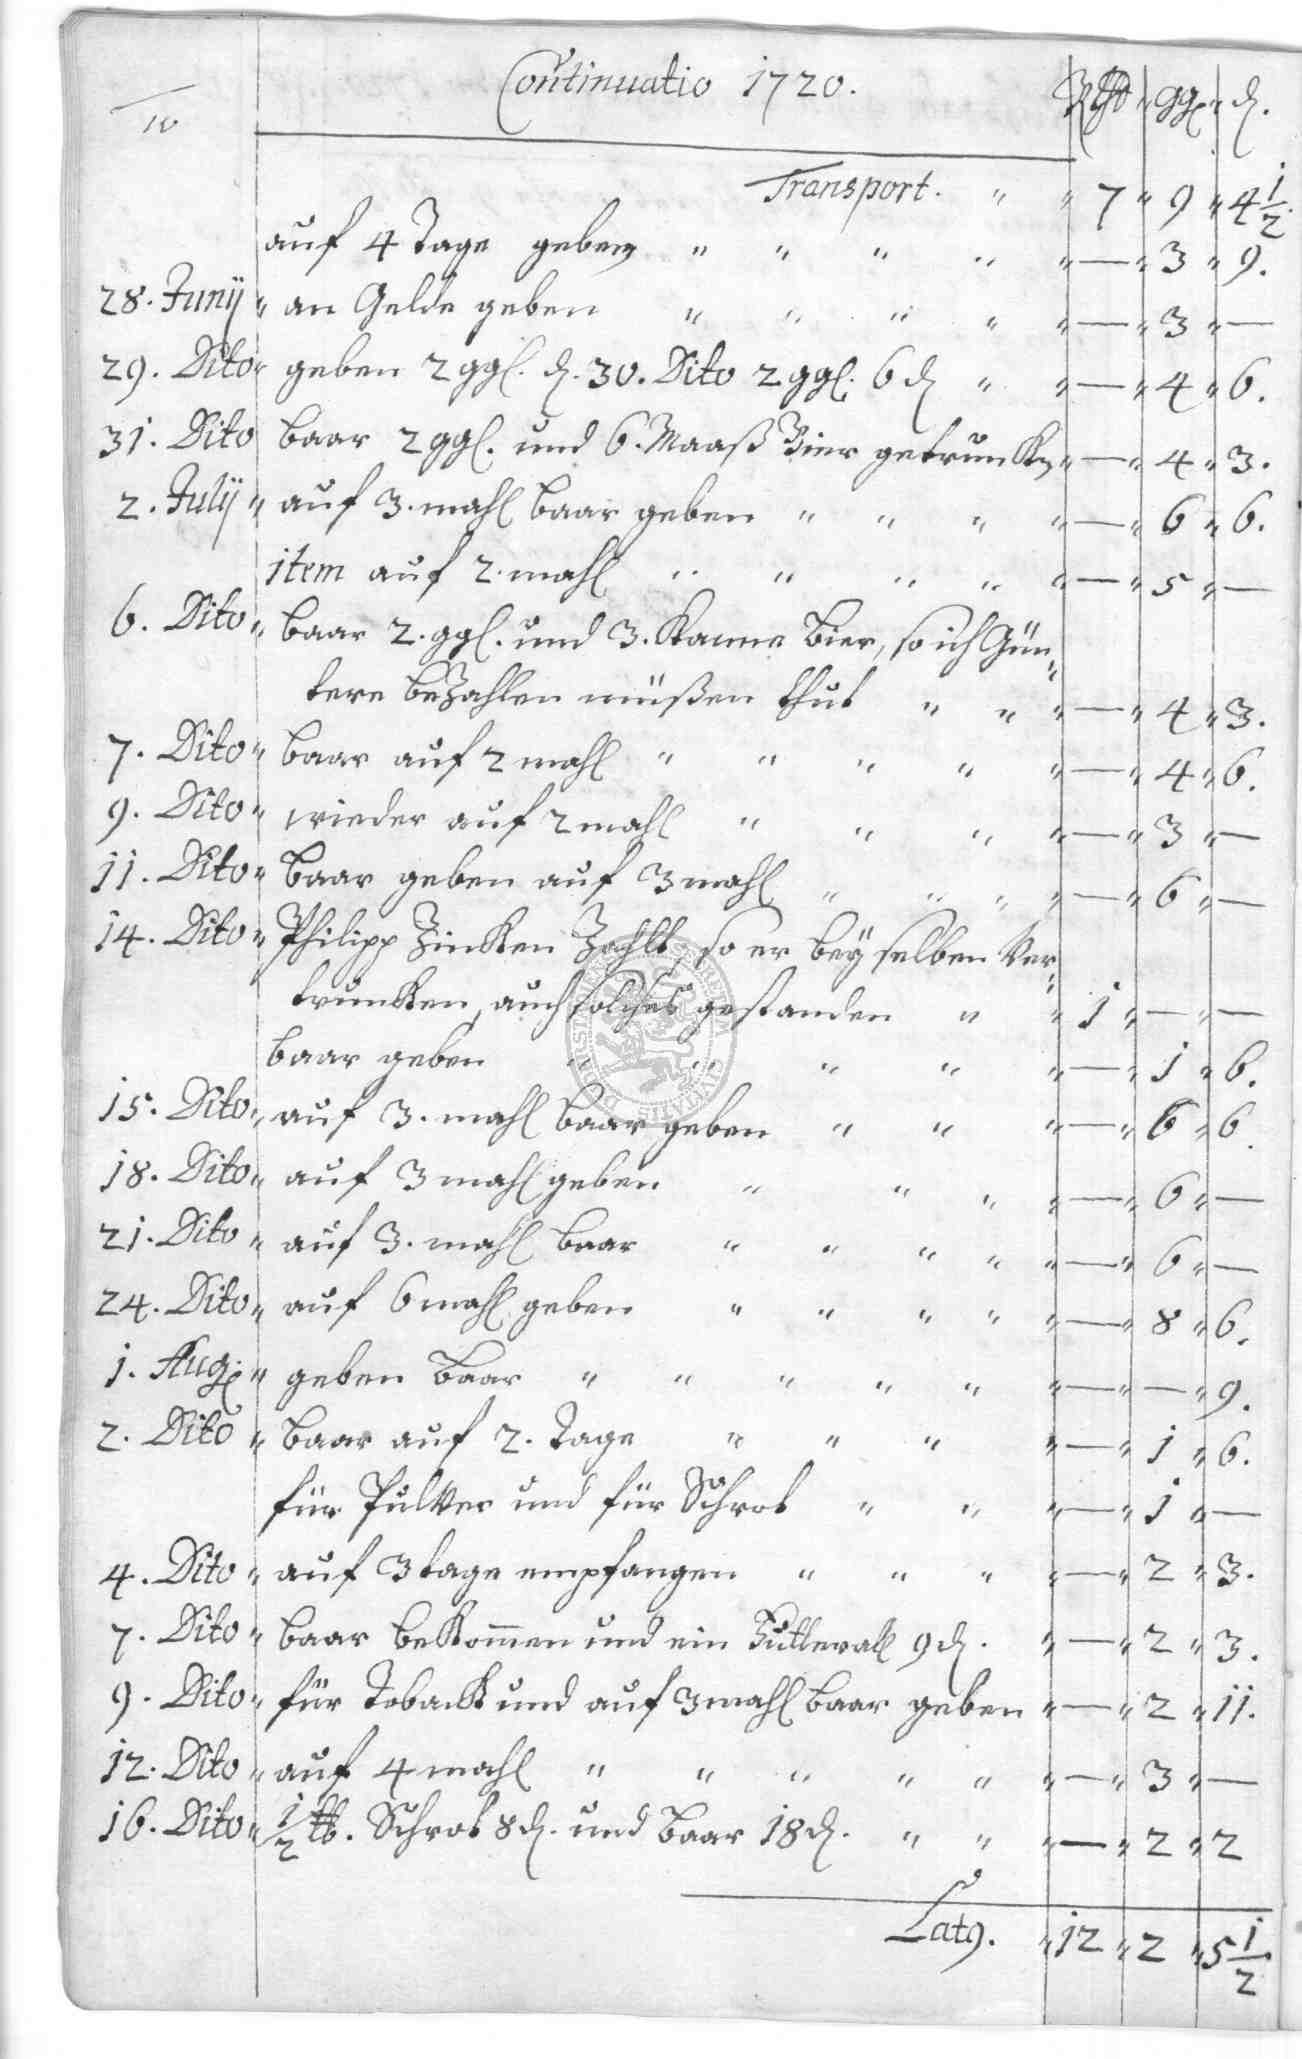 Continuatio 1720. Rthl " ggl " d.
10
Transport. " " 7 " 9 " 4 1/2.
auf 4 Tage geben " " " " " — " 3 " 9.
28. Junij " an Gelde geben " " " " " — " 3 " —
29. Dito " geben 2 ggl. d. 30. Dito 2 ggl. 6 d " " — " 4 " 6.
31. Dito baar 2 ggl. und 6. Maaß Bier getruncken " — " 4 " 3.
2. Julij " auf 3. mahl baar geben " " " " — " 6 " 6.
item auf 2. mahl " " " " " — " 5 " —
6. Dito " baar 2. ggl. und 3. Kanne Bier, so ich Gün"
tern bezahlen müßen thut " " " — " 4 " 3.
7. Dito " baar auf 2 mahl " " " " " — " 4 " 6.
9. Dito " wieder auf 2 mahl " " " " — " 3 " —
11. Dito " baar geben auf 3 mahl " " " " — " 6 " —
14. Dito " Philipp Zincken Zahlt, so er beÿ selben Ver"
truncken, auch solches gestanden " " 1 " — " —
baar geben " " " " " — " 1 " 6.
15. Dito " auf 3. mahl baar geben " " " — " 6 " 6.
18. Dito " auf 3 mahl geben " " " " — " 6 " —
21. Dito " auf 3. mahl baar " " " " " — " 6 " —
24. Dito " auf 6 mahl geben " " " " " — " 8 " 6.
1. Aug: " geben baar " " " " " " — " — " 9.
2. Dito " baar auf 2. Tage " " " " — " 1 " 6.
für Pulver und für Schrot " " " — " 1 " —
4. Dito " auf 3 tage empfangen " " " " — " 2 " 3.
7. Dito " baar bekommen und ein Futteral 9 d. " — " 2 " 3.
9. Dito " für Toback und auf 3 mahl baar geben " — " 2 " 11.
12. Dito " auf 4 mahl " " " " " " — " 3 " —
16. Dito " 1/2 ℔. Schrot 8 d. und baar 18 d. " " " — " 2 " 2
Lat9. " 12 " 2 " 5 1/2